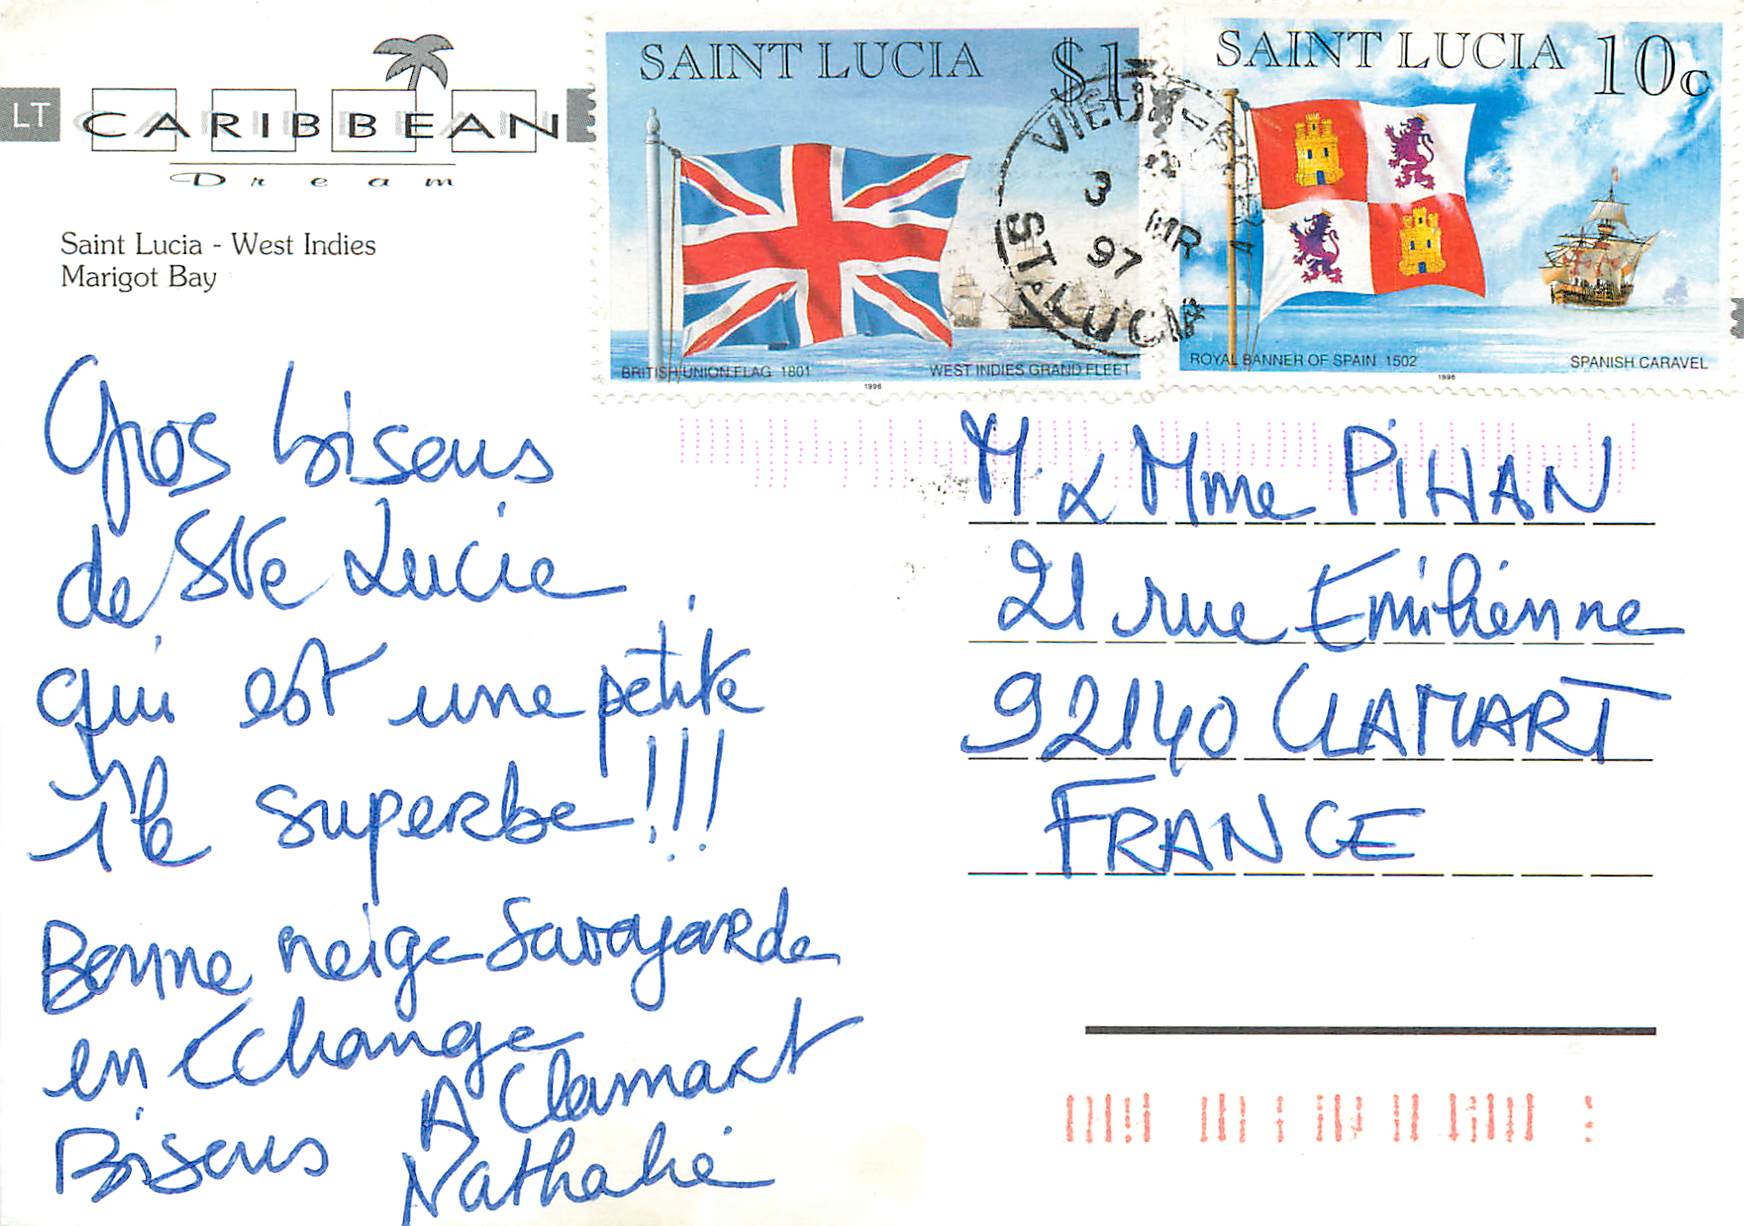 LT CARIBBEAN
Dream
Saint Lucia - West Indies
Marigot Bay
SAINT LUCIA $1
BRITISH UNION FLAG 1801 WEST INDIES GRAND FLEET
1996
SAINT LUCIA 10c
ROYAL BANNER OF SPAIN 1502 SPANISH CARAVEL
1996
VIEUX-FORT
3 MR
97
ST. LUCIA
Gros bisous
de Ste Lucie
qui est une petite
île superbe !!!
Bonne neige Savoyarde
en échange
A Clamart
Bisous Nathalie
M & Mme PIHAN
21 rue Emilienne
92140 CLAMART
FRANCE